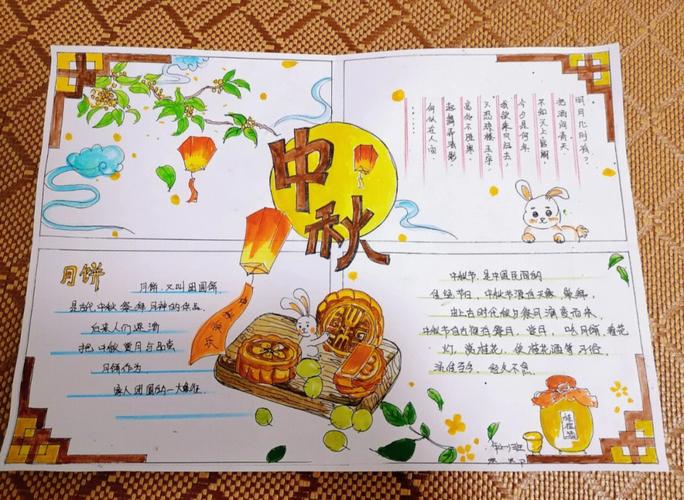 中秋
明月几时有?
把酒问青天。
不知天上宫阙
今夕是何年
我欲乘风归去,
又恐琼楼玉宇,
高处不胜寒,
起舞弄清影,
何似在人间
……
月饼
月饼,又叫团圆饼,
是古代中秋祭拜月神的供品,
后来人们逐渐
把中秋赏月与品尝
月饼作为
家人团圆的一大象征
中秋快乐
中秋节,是中国民间的
传统节日,中秋节源自天象崇拜,
由上古时代秋夕祭月演变而来,
中秋节自古便有祭月、赏月、吃月饼、看花
灯、赏桂花、饮桂花酒等习俗,
流传至今,经久不息